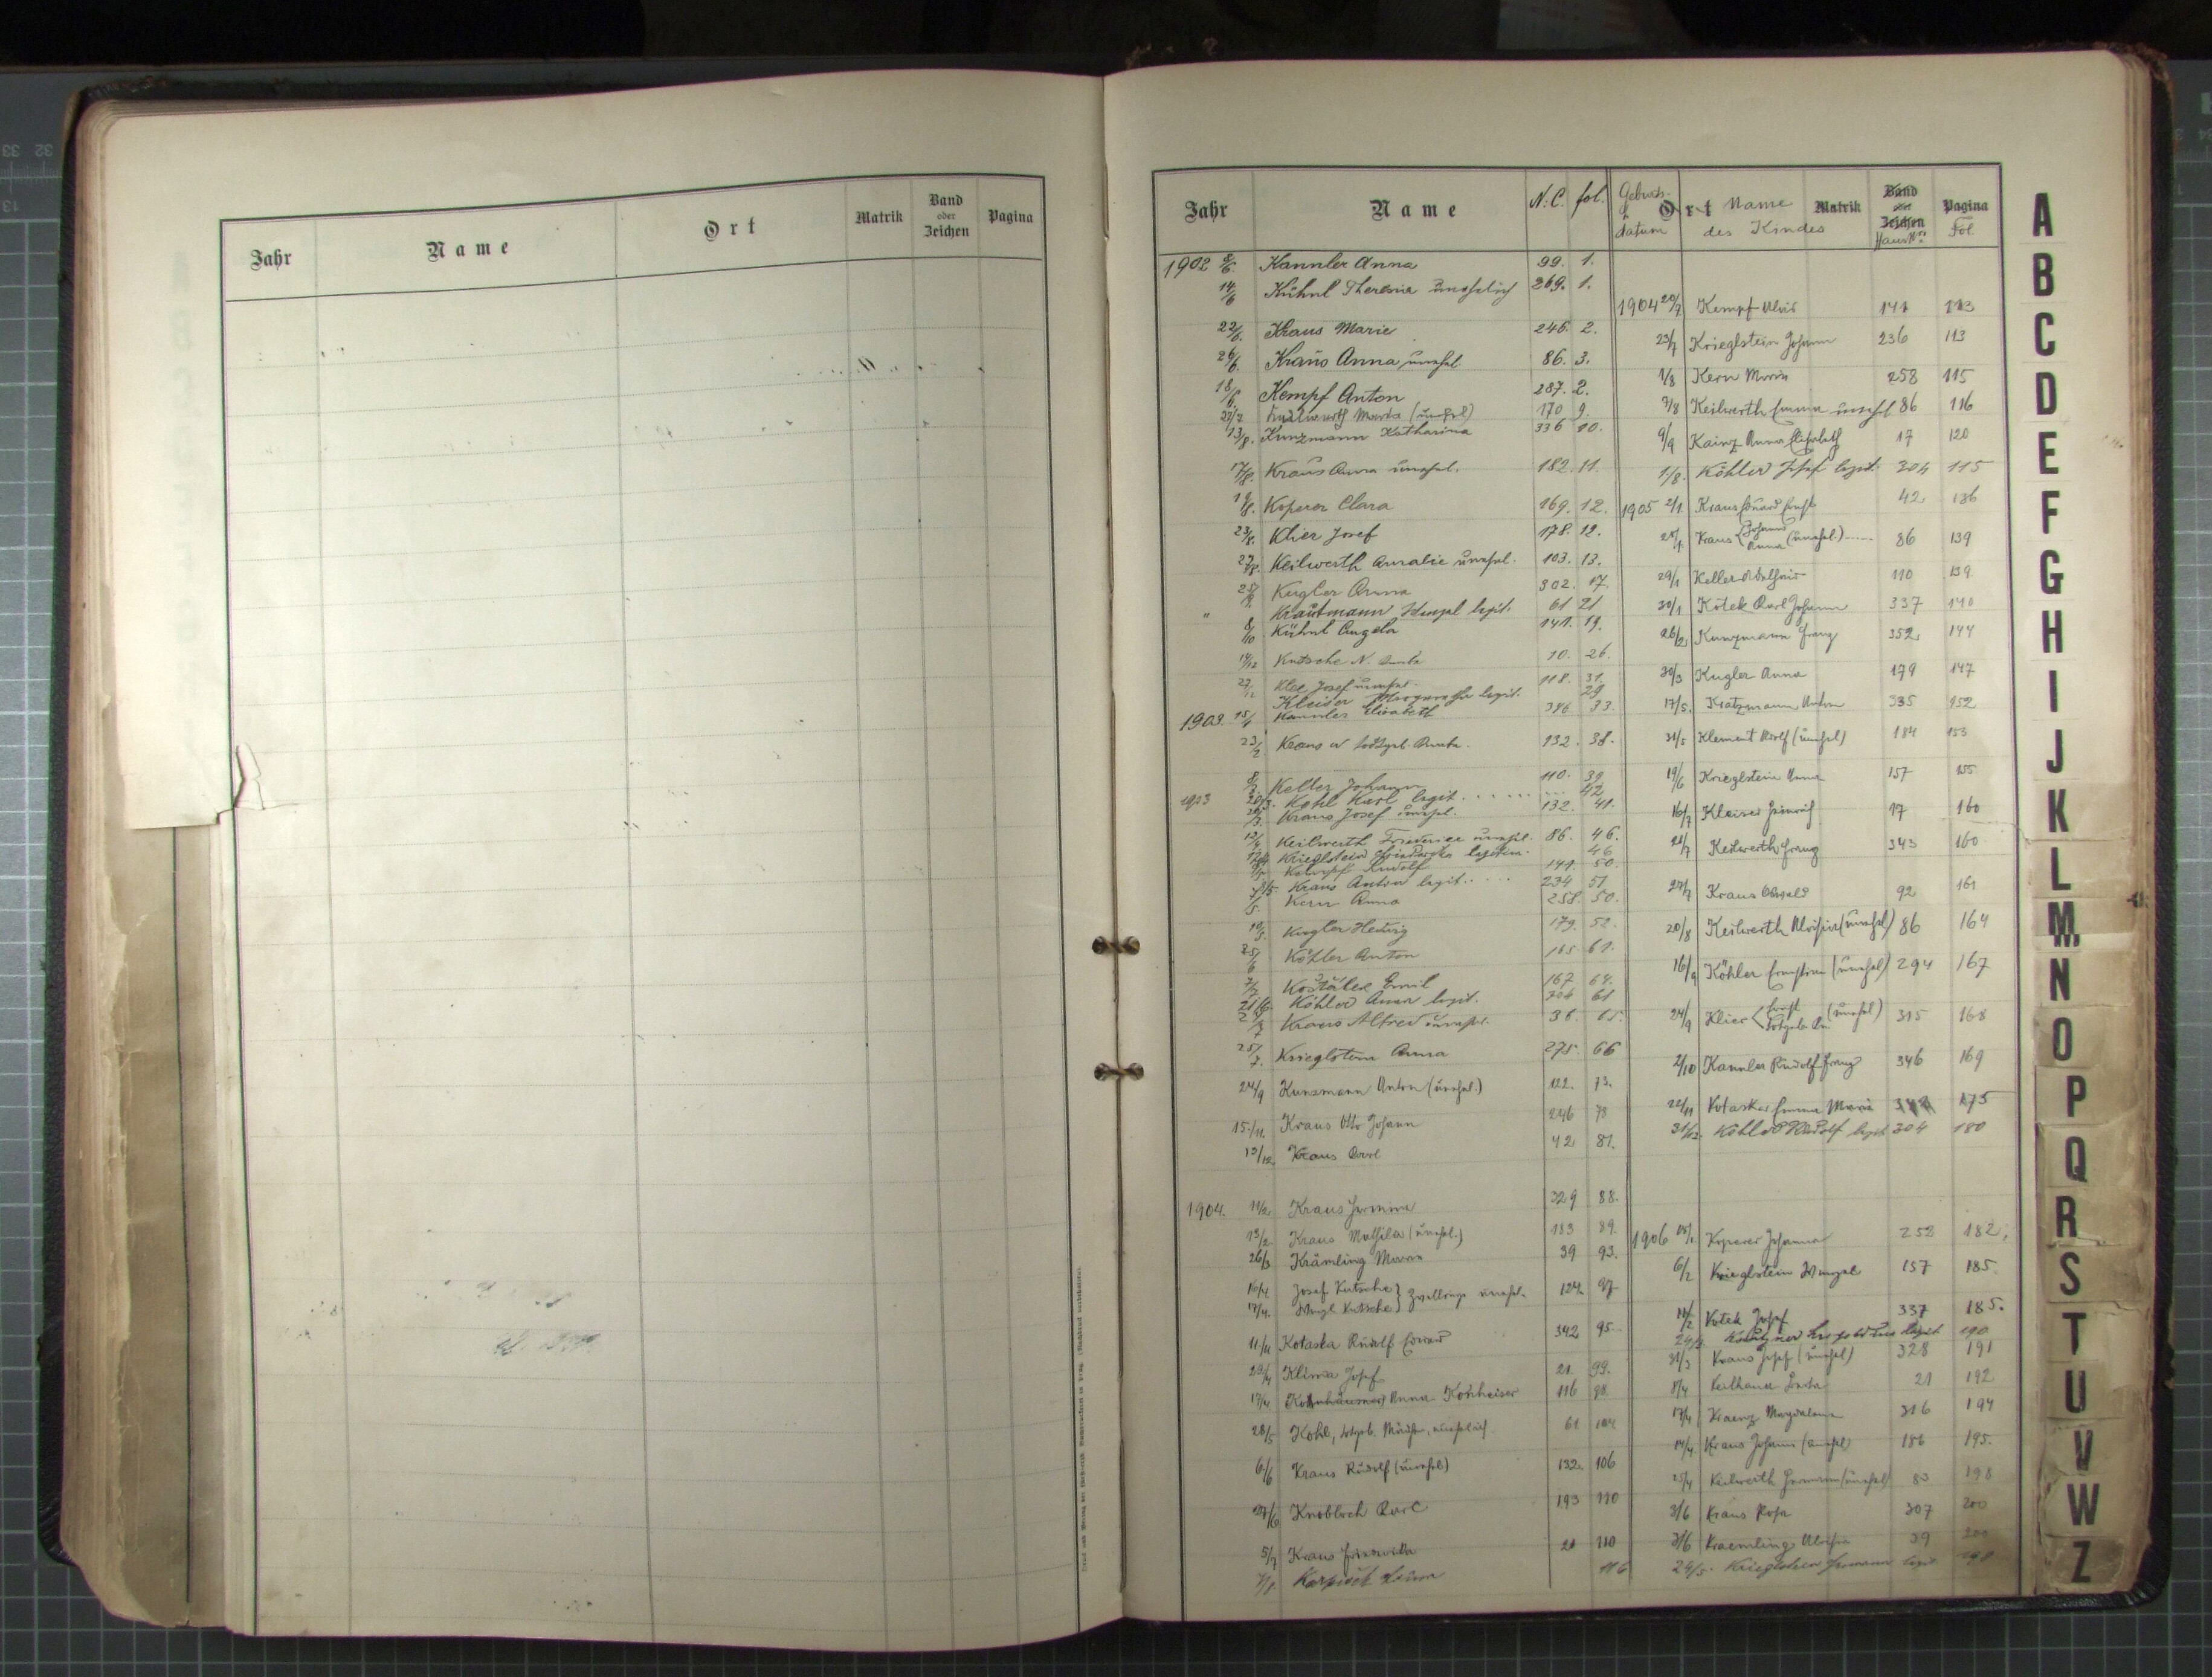 Jahr Name Ort Matrik Band oder Zeichen Pagina
Jahr Name N. C. fol.
1902 8/6. Kannler Anna 99. 1.
14/6 Kühnl Theresia unehelich 269. 1.
22/6. Kraus Marie 246. 2.
26/6. Kraus Anna unehel. 86. 3.
18/6. Kempf Anton 287. 2.
(unehel) 170 9.
13/8. Kunzmann Katharina 336 10.
17/8. Kraus Anna unehel. 182. 11.
19/8. Koperer Clara 169. 12.
23/8. Klier Josef 178. 12.
27/8. Keilwerth Amalie unehel. 103. 13.
Kugler Anna 302. 17.
" Krautmann Wenzel legit. 61 21
8/10 Kühnl Angela 141. 19.
14/12 Kutsche N. 10. 26.
Klee Josef unehel. 118. 31.
Kleiser Margaretha legit. 29
1903. 15/1 Kannler Elisabeth 346 33.
23/2 Kraus N todtgeb. 132. 38.
8/3. Keller Johann 110. 39
1903 Kohl Karl legit. . . . . . . . . 42
Kraus Josef unehel. 132. 41.
12/4 Keilwerth unehel. 86. 46.
Krieglstein legitim. 46
Kempf Rudolf 141. 50.
Kraus Anton legit. . . . . 234 51
Kern Anna 258. 50.
Kugler Hedwig 179. 52.
25/6 Köhler Anton 185. 61.
7/7. Emil 167 64.
Köhler Anna legit. 304 61
Kraus Alfred unehel. 36. 65.
25/7. Krieglstein Anna 275. 66
24/9 Kunzmann Anton (unehel.) 122. 73.
15./11. Kraus Otto Johann 246 78
13/12. Kraus Carl 42 81.
1904. 11/2. Kraus Hermine 329 88.
13/2. Kraus Mathilde (unehel.) 183 89.
26/3 Krämling Maria 39 93.
16/4. Josef Kutsche } Zwillinge unehel. 124. 97
17/4. Wenzl Kutsche }
11/4 Kotaska Rudolf Eduard 342 95.
29/4 Klima Josef 21. 99.
17/4 Anna Kohnheiser 116 98
28/5 Kohl, todtgeb. Mädch., unehelich 61 104
6/6 Kraus Rudolf (unehel) 132. 106
27/6 Knobloch Carl 193 110
5/7 Kraus 20 110
7/8 116
Geburtsdatum Ort Name des Kindes Matrik Band oder Zeichen Haus Nr. Pagina Fol
1904 20/7 Kempf Alois 141 113
23/7 Krieglstein Johann 236 113
1/8 Kern Maria 258 115
7/8 Keilwerth Emma unehel 86 116
9/9 Kainz Anna Elisabeth 17 120
1/8. Köhler Josef legit. 304 115
1905 2/1. Kraus Eduard Ernst 42. 136
25/1. Kraus { Johann Anna (unehel.) ...... 86 139
29/1 Keller Adelheid 110 139
30/1 Kotek Carl Johann 337 140
26/2. Kunzmann Franz 352. 144
30/3 Kugler Anna 179 147
17/5. Kratzmann Anton 335 152
31/5 Klement Adolf (unehel) 184 153
19/6 Krieglstein Anna 157 155
16/7 Kleiser Heinrich 17 160
21/7 Keilwerth Franz 343 160
27/7 Kraus Oswald 92 161
20/8 Keilwerth Aloisia (unehel) 86 164
16/9 Köhler Ernestine (unehel) 294 167
24/9 Klier < Ernst (unehel) 315 168
2/10 Kannler Rudolf Franz 346 169
22/11 Kotaska Emma Maria 342 175
31/12. Köhler Rudolf legit 304 180
1906 Koperer Johanna 252 182.
6/2 Krieglstein Wenzel 157 185.
11/2 Kotek Josef 337 185.
legit 190
31/3 Kraus Josef (unehel) 328 191
8/4 21 192
17/4 Kraenz Magdalena 316 194
14/4. Kraus Johann (unehel) 186 195.
25/4 Keilwerth Hermann (unehel) 83 198
3/6 Kraus Rosa 307 200
3/6 Kraemling Aloisia 39 200
24/5. Krieglstein Hermann legit 198
A
B
C
D
E
F
G
H
I
J
K
L
M
N
O
P
Q
R
S
T
U
V
W
Z